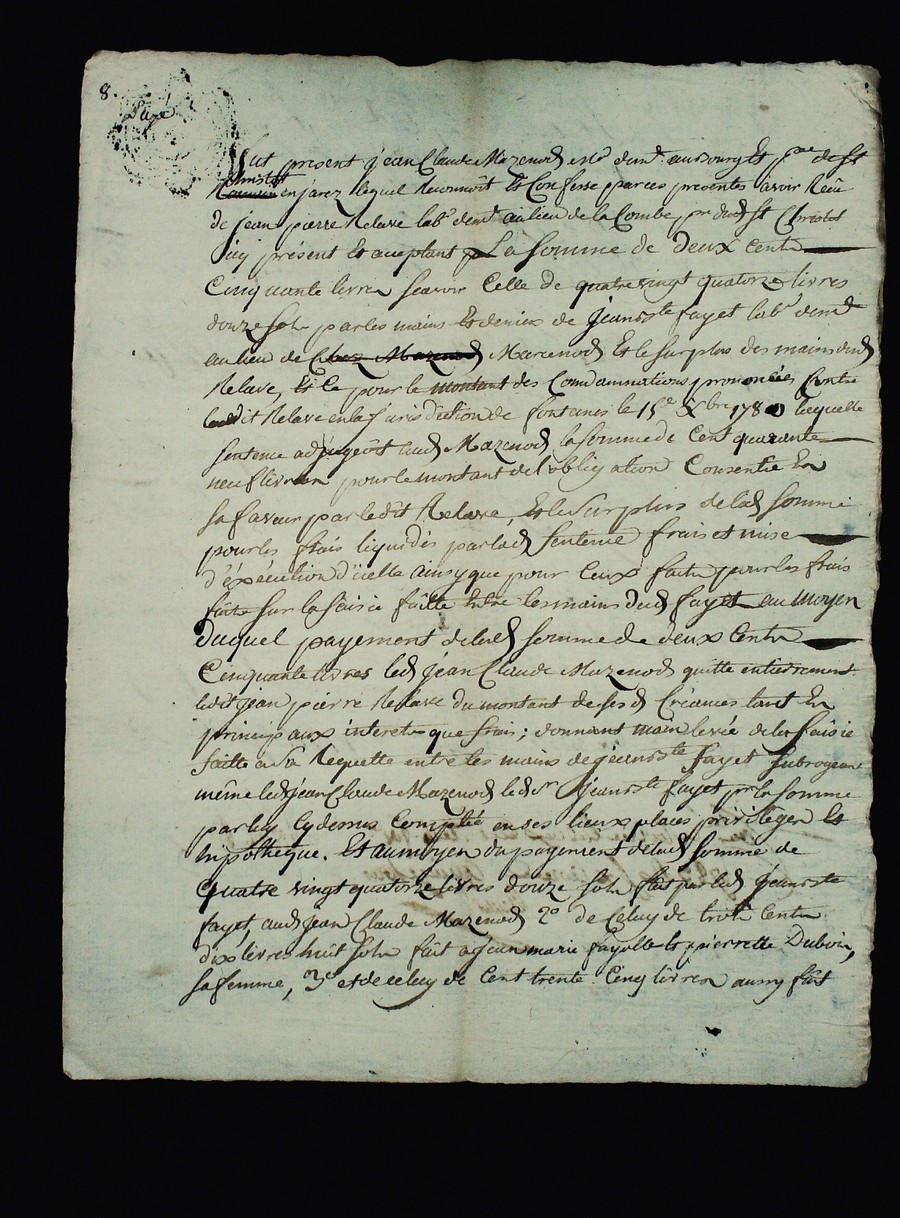 8.
payé
fut présent jean Claude Mazenod md demt au bourg et psse de St
Christot en jarez lequel Reconnoit Et Confesse par ces presentes avoir Reçu
de jean pierre Relave labr demt au lieu de la Combe psse dud St Christot
icy présent Et acceptant La Somme de Deux Cents
Cinquante livres scavoir Celle de quatre vingt quatorze livres
douze sols par les mains Et deniers de jean Bte fayet labr demt
au lieu de Chez Mazenod Marcenod Et le surplus des mains dud
Relave, Et Ce pour le montant des Condamnations prononcées Contre
ledit Relave en la jurisdiction de fontanes le 15e Xbre 1780 laquelle
sentence adjugeoit aud Mazenod la somme de Cent quarante
neuf livres pour le montant de l'obligation Consentie En
sa faveur par ledit Relave, Et le Surplus de lad somme
pour les frais liquidés par lad Sentence frais et mise
d'éxécution d'icelle ainsy que pour Ceux faits pour les frais
faits Sur la Saisie faitte entre les mains dud fayet au moyen
duquel payement de lad somme de deux Cents
Cinquante livres led jean Claude Mazenod quitte entierement
ledit jean pierre Relave du montant de sesd Créances tant En
principaux interets que frais ; donnant main levée de la Saisie
faitte a Sa Requette entre les mains de jean Bte fayet Subrogeant
même led jean Claude Mazenod led Sr jean Bte fayet pr la somme
par luy Cy dessus Comptée en ses lieux places privileges Et
hipotheque. Et au moyen du payement de lad somme de
Quatre vingt quatorze livres douze sols fait par led jean Bte
fayet, aud jean Claude Mazenod 2o de Celuy de trois Cents
dix livres huit sols fait a jean marie fayolle Et pierrette Dubois,
sa femme, 3o et de celuy de Cent trente Cinq livres aussy fait